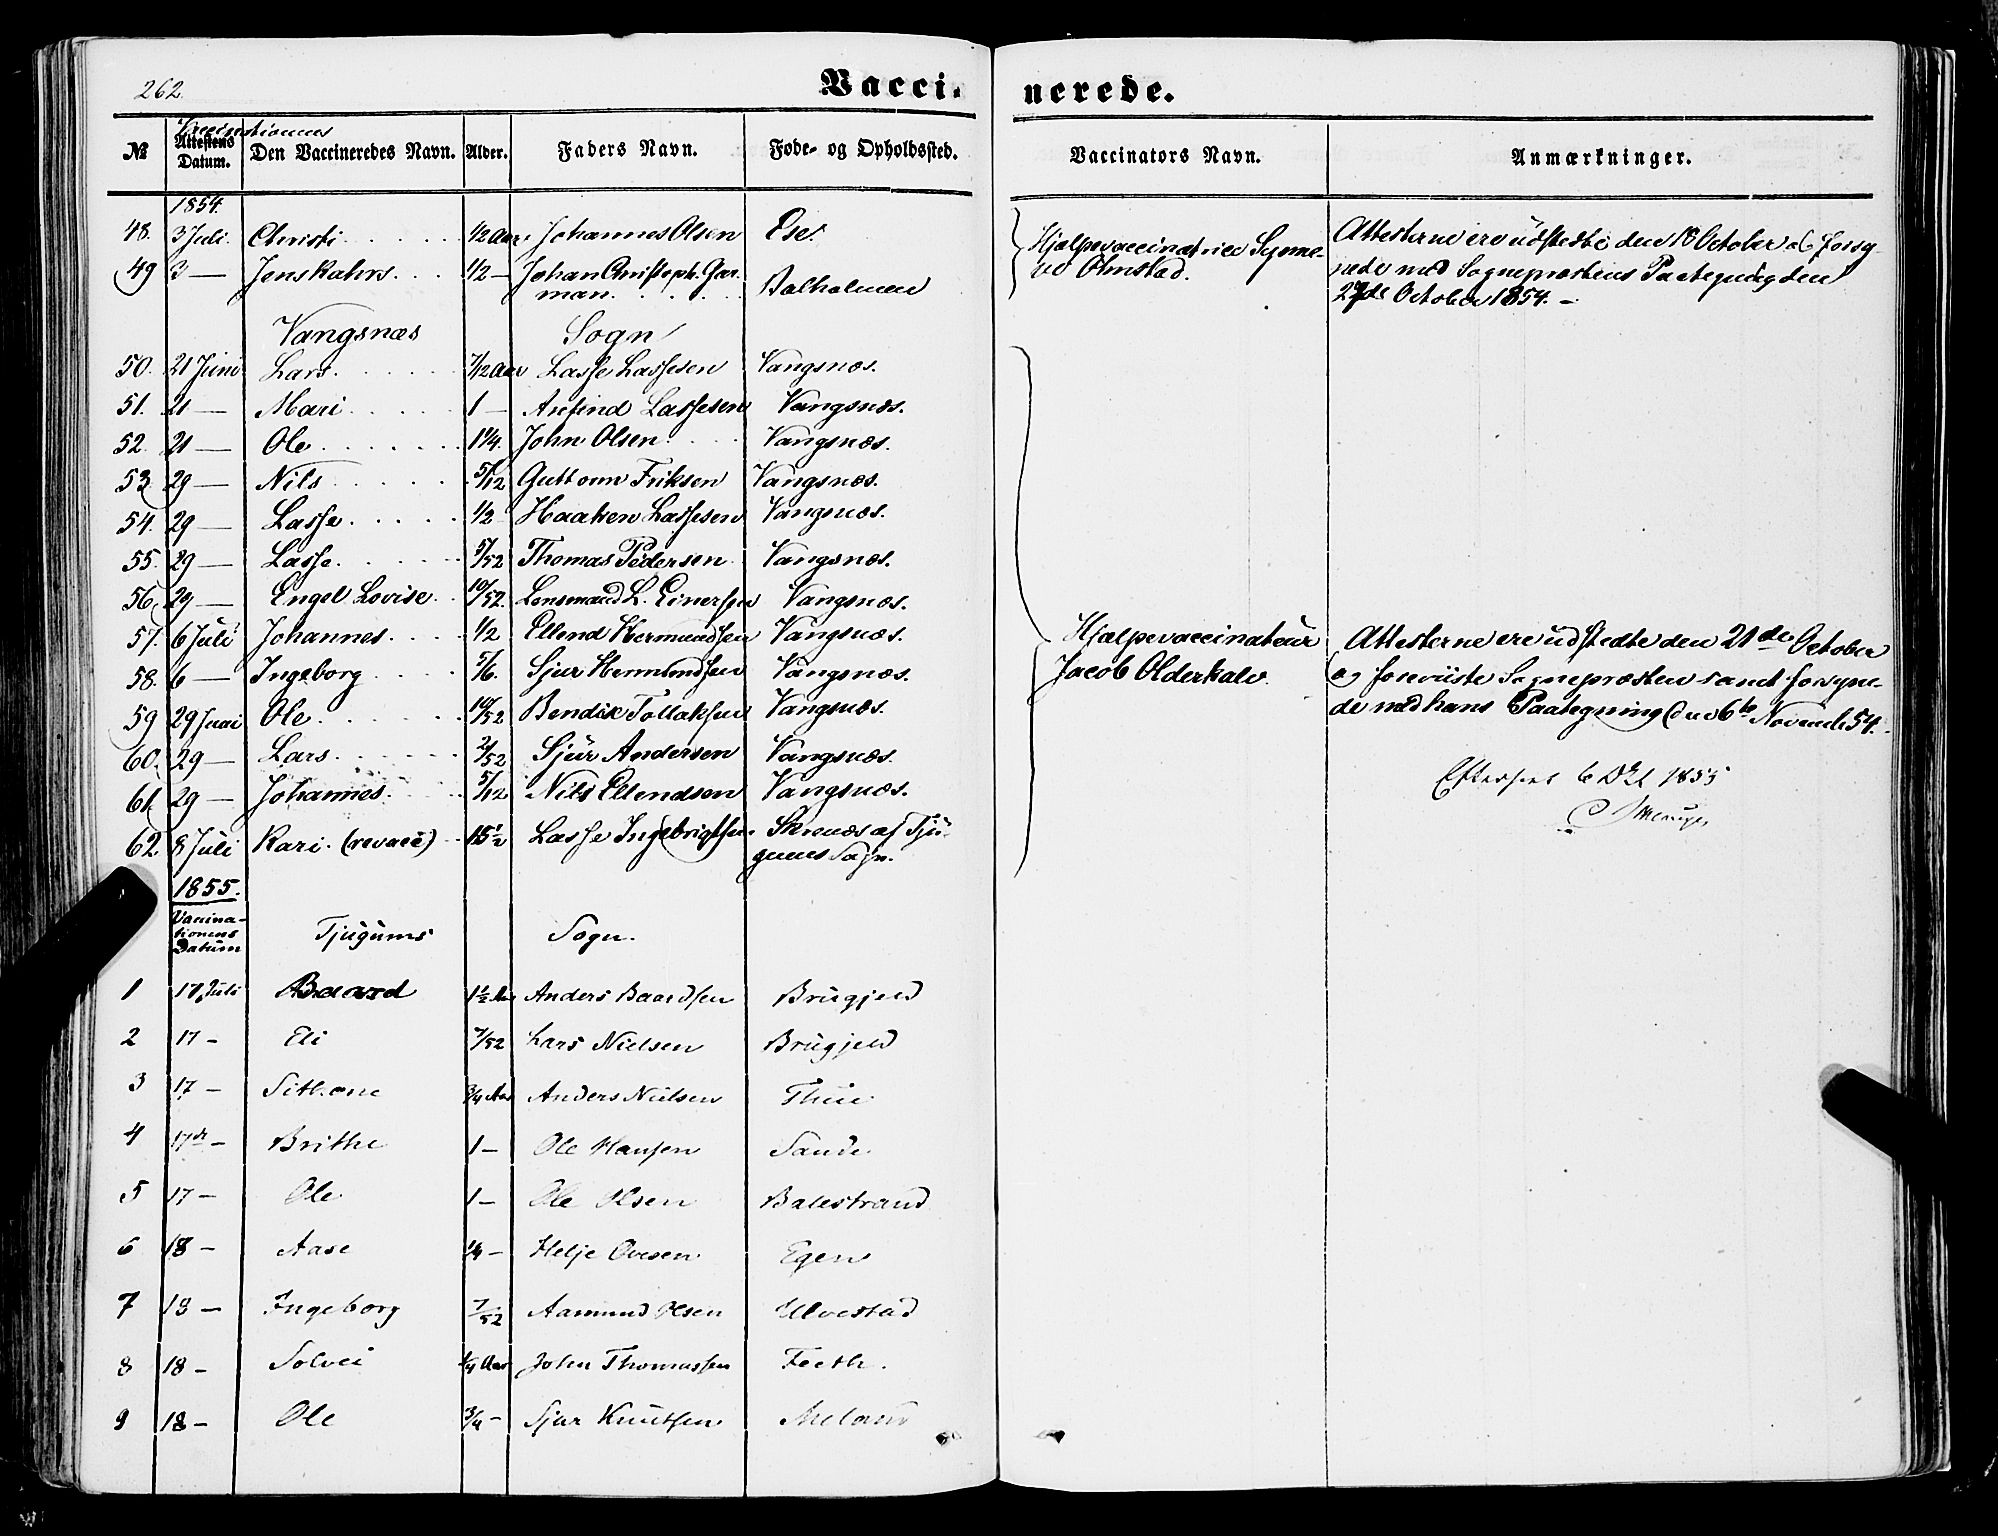 262.
Vacci-
nerede.
Vaccinationens
№ Attestens Datum. Den Vaccineredes Navn. Alder. Faders Navn. Føde- og Opholdssted. Vaccinators Navn. Anmærkninger.
1854.
48. 3 Juli. Christi 1/2 Aar Johannes Olsen Ese.
49 3 — Jens Kahrs 1/2 — Johan Christoph. Gar-
man Balholmen
Hjælpevaccinatrice Synne-
ve Olmstad.
Attesterne ere udstedte den 18 October og forsy-
nede med Sognepræstens Paategning den
27de October 1854. —
Vangsnæs Sogn
50. 21 Juni Lars 7/12 Aar Lasse Lassesen Vangsnæs.
51. 21 — Mari 1 — Anfind Lassesen Vangsnæs.
52. 21 — Ole 1 1/4. John Olsen Vangsnæs.
53 29 — Nils 5/12 Guttorm Eriksen Vangsnæs.
54. 29 — Lasse 1/2 Haaken Lassesen Vangsnæs.
55. 29 — Lasse 5/52 Thomas Pedersen Vangsnæs.
56. 29 — Engel Lovise 10/52. Lensmand L. Einersen Vangsnæs.
57. 6 Juli Johannes 1/2 Ellend Hermundsen Vangsnæs.
58. 6 — Ingeborg 5/6. Sjur Hermundsen Vangsnæs.
59 29 Juni Ole 10/52 Bendik Tollaksen Vangsnæs.
60. 29 — Lars 2/52 Sjur Andersen Vangsnæs.
61. 29 — Johannes 5/12 Nils Ellendsen Vangsnæs.
62. 8 Juli Kari (revacc) 15 1/2 Lasse Ingebrigtsen Skrenæs af Tju-
gums Sogn.
Hjælpevaccinateur
Jacob Olderkalv.
Attesterne ere udstedte den 21de October
og foreviiste Sognepræsten samt forsyne-
de med hans Paategning den 6te Novemb. 54.
Efterseet 6 Okt 1855
1855.
Vaccina-
tionens
Datum
Tjugums Sogn.
1 17 Juli Baard 1 1/2 Aar Anders Baardsen Brugjeld
2 17 — Eli 7/52 Lars Nielsen Brugjeld
3 17 — Sithane 3/4 Aar Anders Nielsen Thue
4 17de — Brithe 1 — Ole Hansen Sande
5 17 — Ole 1 — Ole Olsen Balestrand
6 18 — Aase 1/4 — Helje Ovesen Egen
7 18 — Ingeborg 7/52 Aamund Olsen Ulvestad
8 18 — Solvei 1/4 Aar John Thomassen Feeth.
9 18 — Ole 3/4 — Sjur Knutsen Meland